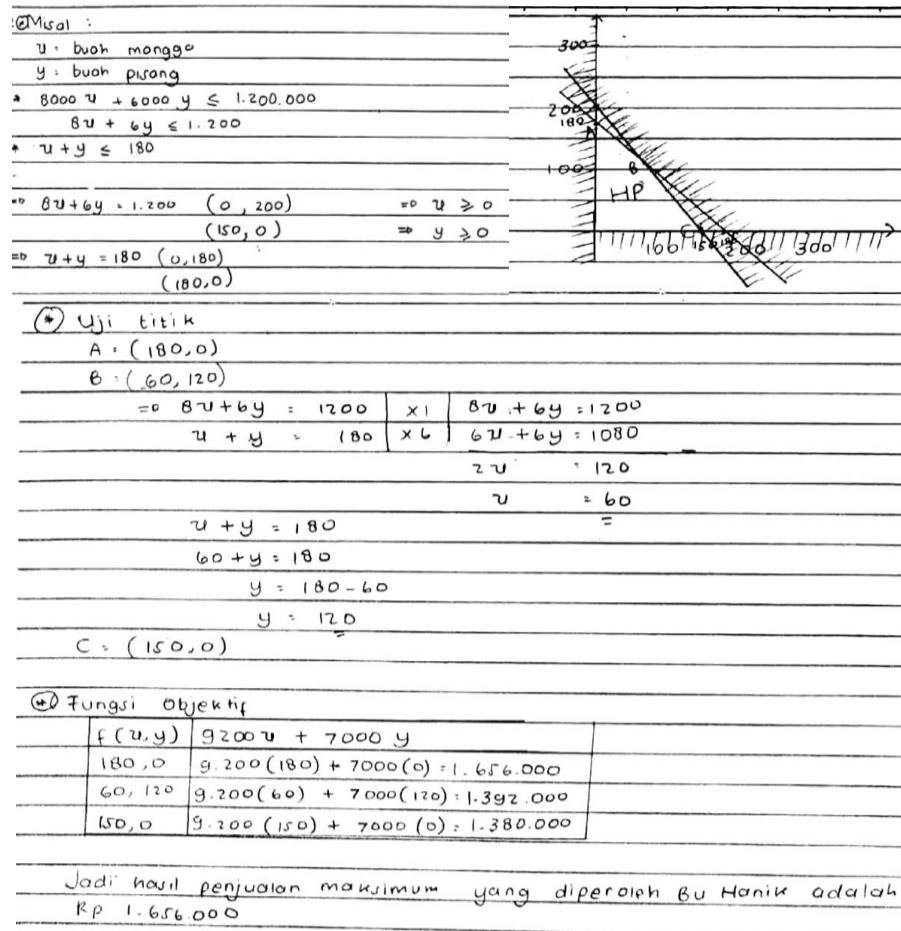 Misal :
x : buah mangga
y : buah pisang
* 8000 x + 6000 y ≤ 1.200.000
8x + 6y ≤ 1.200
* x + y ≤ 180
=> 8x+6y = 1.200 (0, 200) => x ≥ 0
(150, 0) => y ≥ 0
=> x+y = 180 (0,180)
(180,0)
300
200
180
A
100
B
HP
C
100 150 180 200 300
(*) Uji titik
A = (180,0)
B = (60, 120)
=> 8x+6y = 1200 | x1 | 8x + 6y = 1200
x + y = 180 | x6 | 6x + 6y = 1080
2x = 120
x = 60
x + y = 180
60 + y = 180
y = 180 - 60
y = 120
C = (150,0)
(*) Fungsi Objektif
f(x,y) | 9200x + 7000 y
180,0 | 9.200(180) + 7000(0) = 1.656.000
60, 120 | 9.200(60) + 7000(120) = 1.392.000
150,0 | 9.200 (150) + 7000 (0) = 1.380.000
Jadi hasil penjualan maksimum yang diperoleh Bu Hanik adalah
Rp 1.656.000